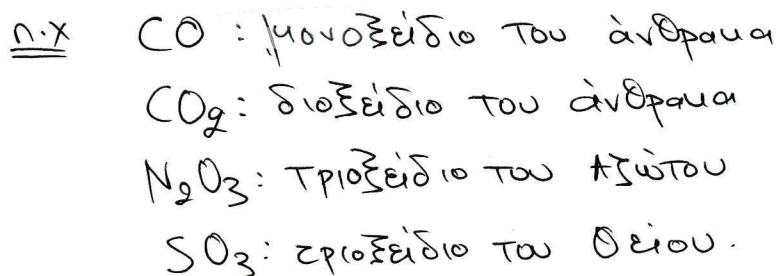 π.χ CO : μονοξείδιο του άνθρακα
CO₂: διοξείδιο του άνθρακα
N₂O₃: τριοξείδιο του Αζώτου
SO₃: τριοξείδιο του θείου.